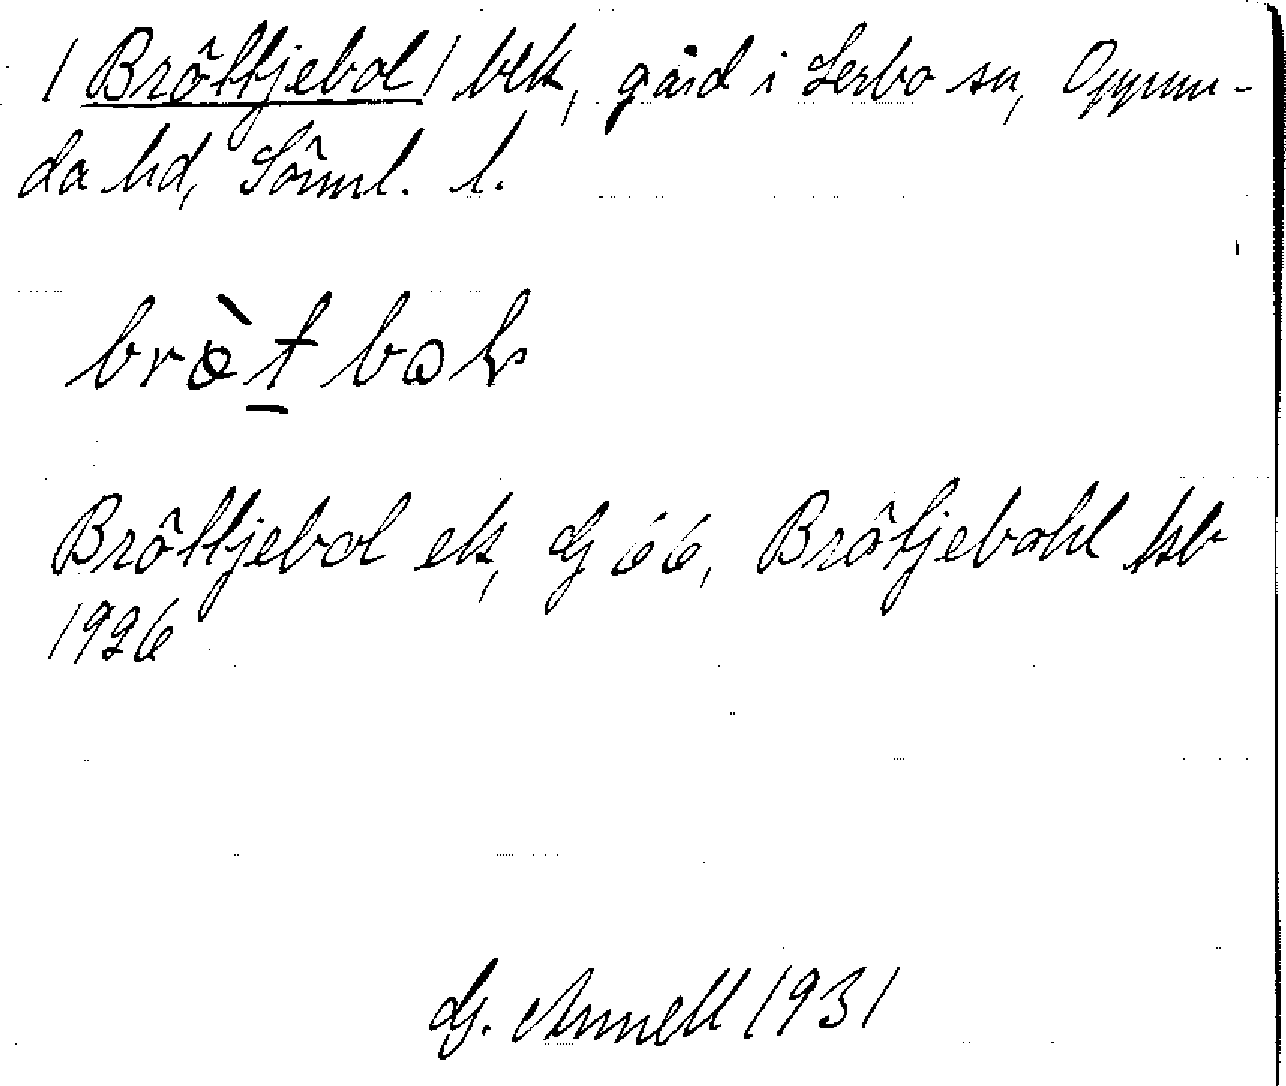 / Bröttjebol / blk, gård i Lerbo sn, Oppun-
da hd, Sörml. l.
brø̀t̠bol
Bröttjebol ek, Gj 66, Brötjebohl ksb
1926
G. Annell 1931